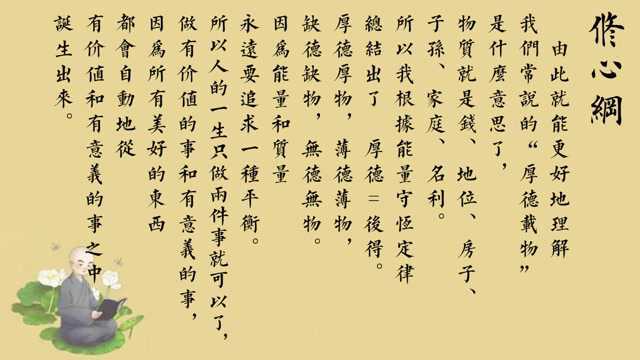 修心綱
由此就能更好地理解
我們常說的“厚德載物”
是什麼意思了，
物質就是錢、地位、房子、
子孫、家庭、名利。
所以我根據能量守恆定律
總結出了 厚德=後得。
厚德厚物，薄德薄物，
缺德缺物，無德無物。
因爲能量和質量
永遠要追求一種平衡。
所以人的一生只做兩件事就可以了，
做有价值的事和有意義的事，
因爲所有美好的東西
都會自動地從
有价值和有意義的事之中
誕生出來。